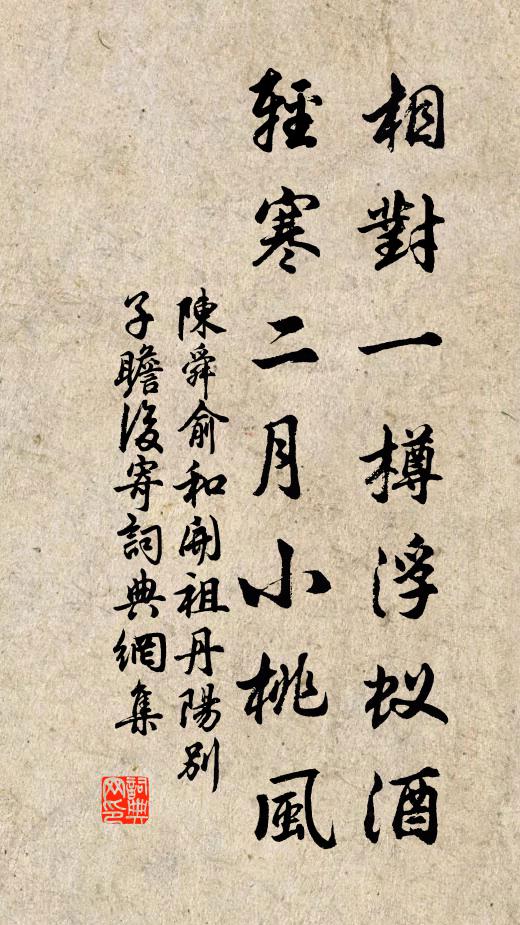 相對一樽浮蚁酒
輕寒二月小桃風
陳舜俞和開祖丹陽別
子瞻後寄詞典網集
詞典
网印